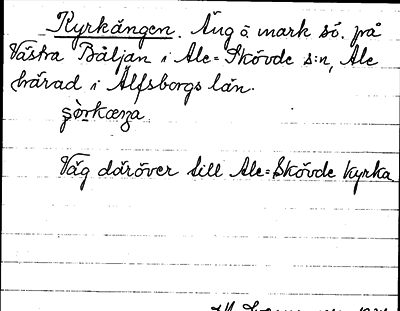 Kyrkängen. Äng å mark sö. på
Västra Båljan i Ale=Skövde s:n, Ale
härad i Älfsborgs län.
Väg däröver till Ale=Skövde kyrka